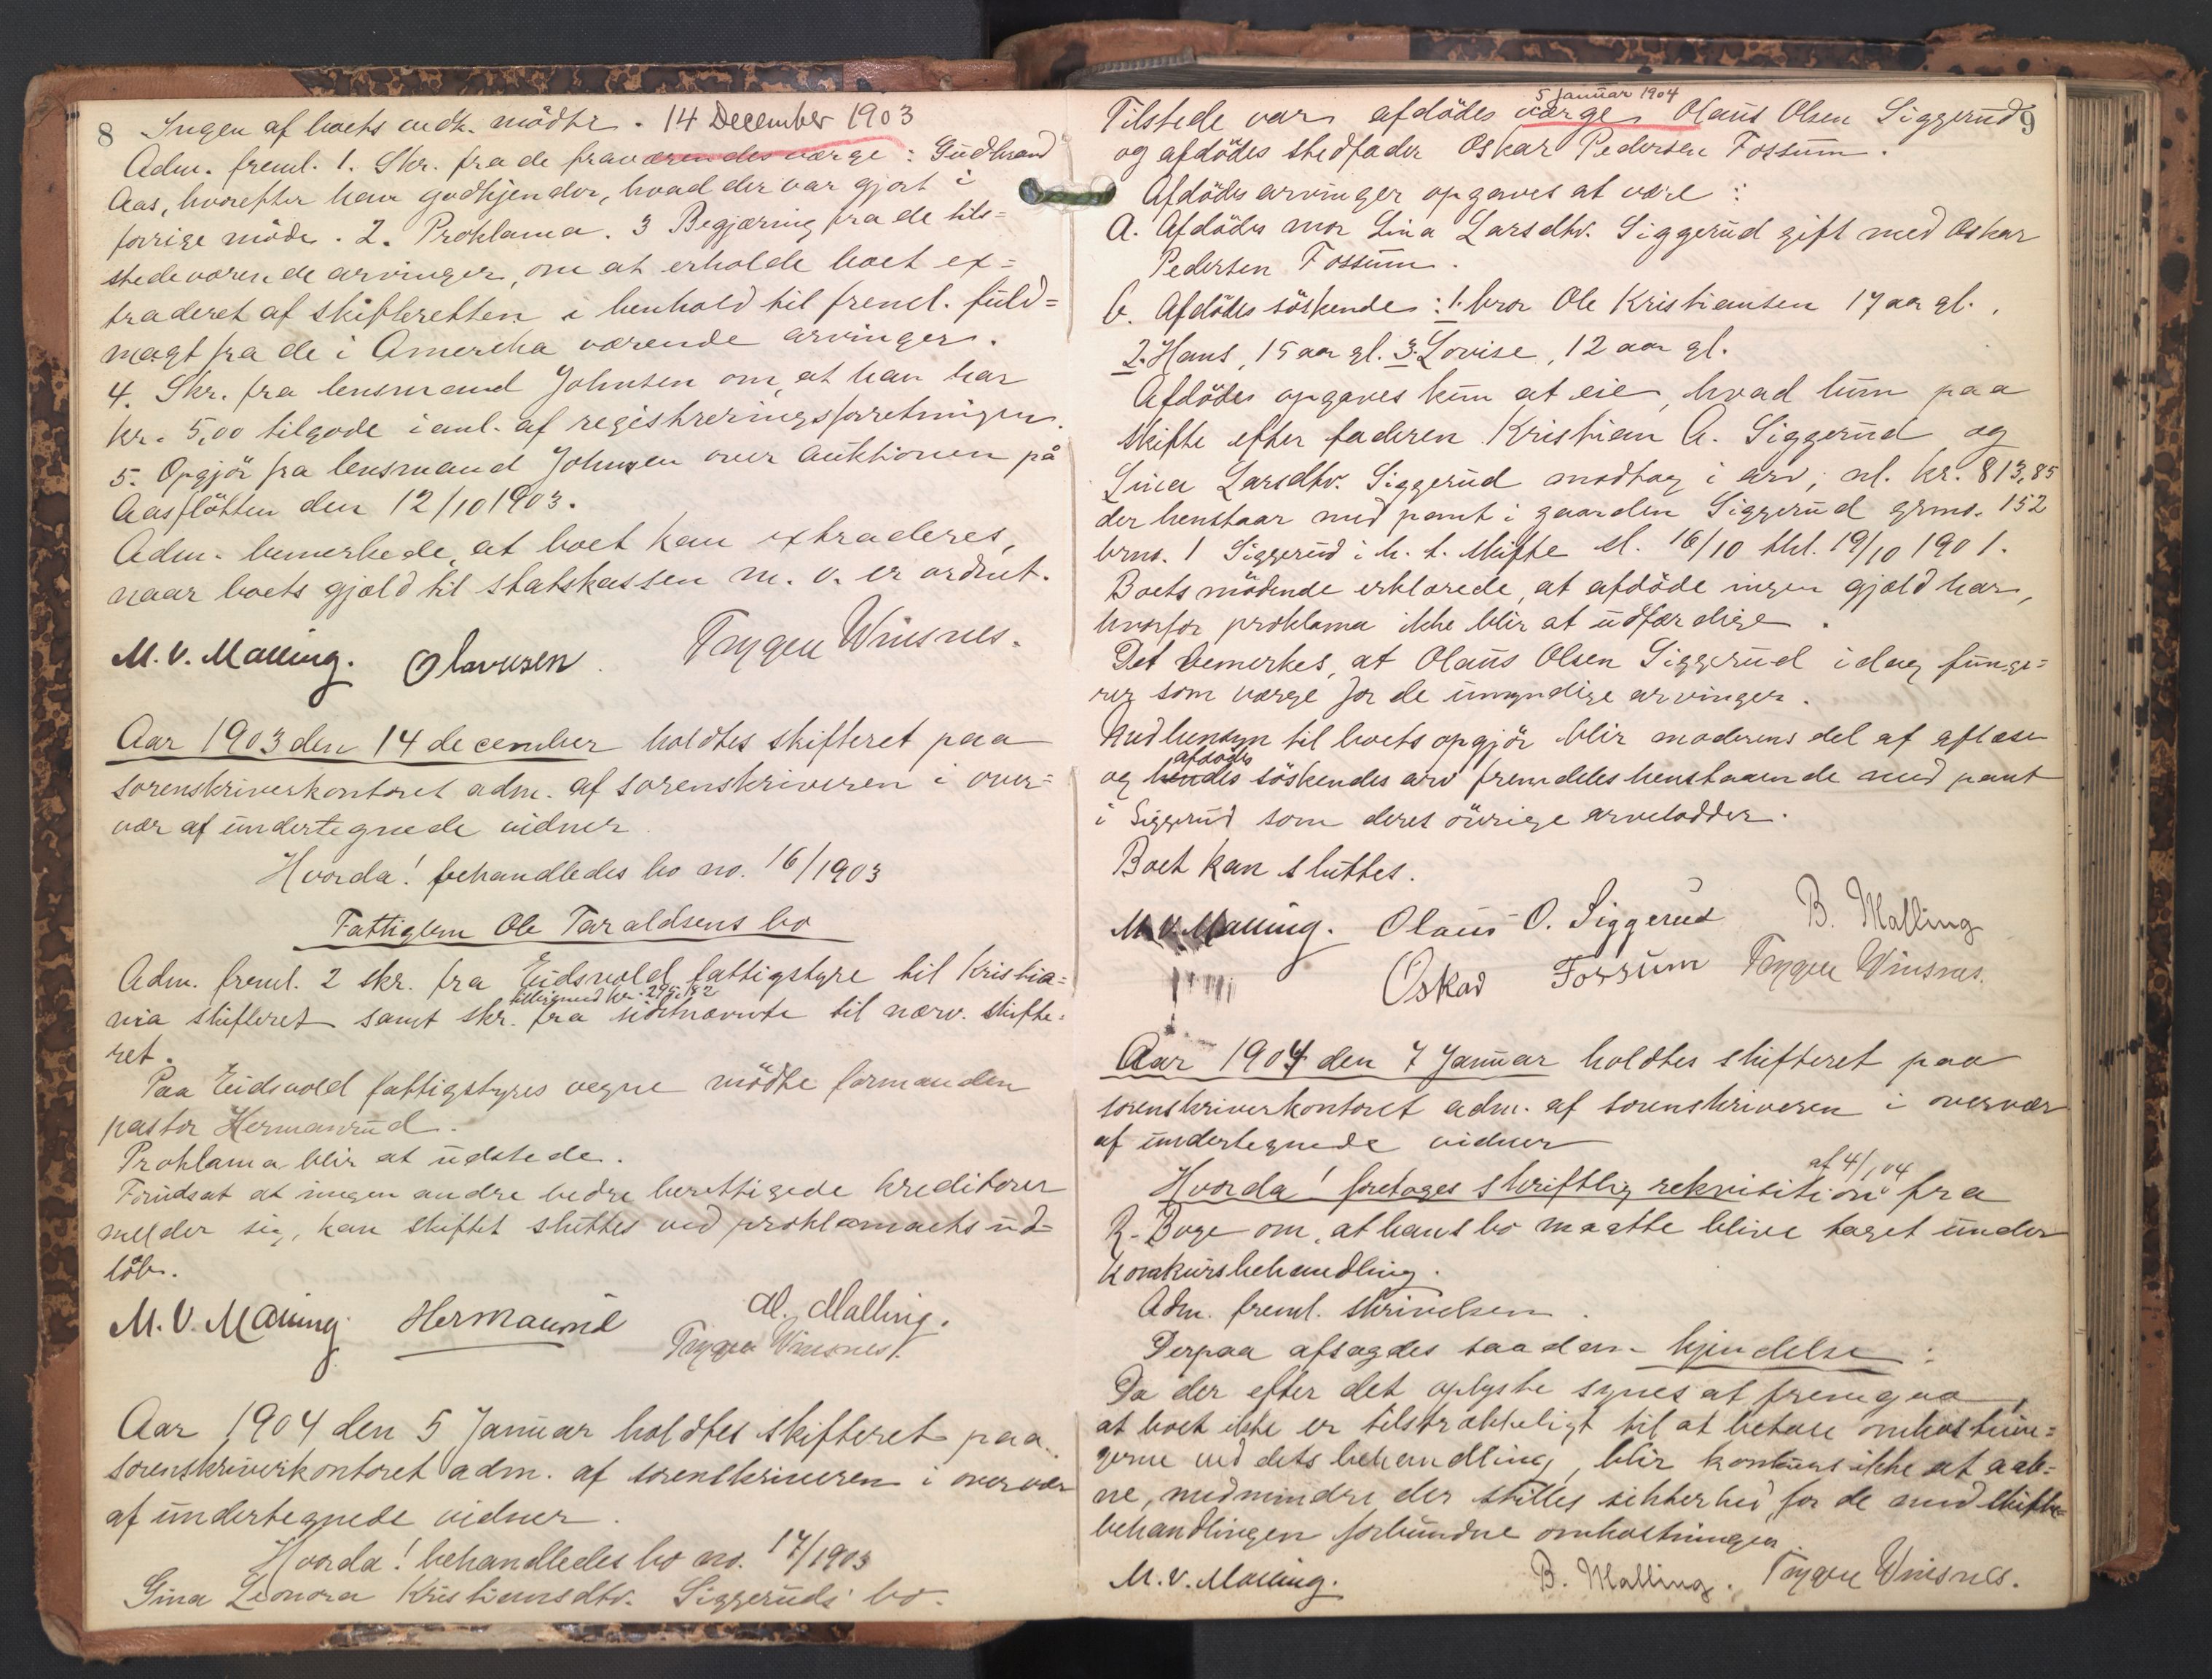 8
Ingen af boets vedk. mödte. 14 December 1903
Adm. freml. 1. Skr. fra de fraværendes værge: Gudbrand
Aas, hvorefter han godkjender, hvad der var gjort i
forrige möde. 2. Proklama. 3 Begjæring fra de til-
stedeværende arvinger, om at erholde boet ex-
traderet af skifteretten i henhold til freml. fuld-
magt fra de i Amerika værende arvinger.
4. Skr. fra lensmand Johnsen om, at han har
kr. 5,00 tilgode i anl. af registreringsforretningen.
5. Opgjör fra lensmand Johnsen over auktionen på
Aasflötten den 12/10 1903.
Adm. bemerkede, at boet kan extraderes,
naar boets gjæld til statskassen m. v. er ordnet.
M. V. Malling. Olavesen. Trygve Wiisnes.
Aar 1903 den 14 december holdtes skifteret paa
sorenskriverkontoret adm. af sorenskriveren i over-
vær af undertegnede vidner.
Hvorda! behandledes bo no. 16/1903
Fattiglem Ole Taraldsens bo
Adm. freml. 2 skr. fra Eidsvold fattigstyre til Kristia-
tilligemed kr. 295,82
nia skifteret samt skr. fra sidstnævnte til nærv. skifte-
ret.
Paa Eidsvold fattigstyres vegne mödte formanden
pastor Hermanrud.
Proklama blir at udstede.
Forudsat at ingen andre bedre berettigede kreditorer
melder sig, kan skiftet sluttes ved proklamaets ud-
löb.
M. V. Malling Hermanrud M. Malling.
Trygve Wiisnes.
Aar 1904 den 5 Januar holdtes skifteret paa
sorenskriverkontoret adm. af sorenskriveren i overvær
af undertegnede vidner.
Hvorda! behandledes bo no. 17/1903
Gina Leonora Kristiansdtr. Siggeruds bo.
9
5 Januar 1904
Tilstede var afdödes værge Olaus Olsen Siggerud
og afdödes stedfader Oskar Pedersen Fossum.
Afdödes arvinger opgaves at være:
a. Afdödes mor Lina Larsdtr. Siggerud gift med Oskar
Pedersen Fossum.
b. Afdödes söskende: 1. bror Ole Kristiansen 17 aar gl.,
2. Hans, 15 aar gl. 3. Lovise, 12 aar gl.
Afdöde opgaves kun at eie, hvad hun paa
skifte efter faderen Kristian A. Siggerud og
Lina Larsdtr. Siggerud modtog i arv, nl. kr. 813,85
der henstaar med pant i gaarden Siggerud grno. 152
brno. 1 Siggerud i h. t. skifte sl. 16/10 thl. 19/10 1901.
Boets mödende erklærede, at afdöde ingen gjæld har,
hvorfor proklama ikke blir at udfærdige.
Det bemerkes, at Olaus Olsen Siggerud idag funge-
rer som værge for de umyndige arvinger.
Med hensyn til boets opgjör blir moderens del af aflæse
afdödes
og hendes söskendes arv fremdeles henstaaende med pant
i Siggerud som deres övrige arvelodder.
Boet kan sluttes.
M. V. Malling. Olaus O. Siggerud B. Malling
Oskar Fossum Trygve Wiisnes.
Aar 1904 den 7 Januar holdtes skifteret paa
sorenskriverkontoret adm. af sorenskriveren i overvær
af undertegnede vidner
af 4/1 04
Hvorda! foretages skriftlig rekvisition fra
R. Boge om, at hans bo maatte blive taget under
konkursbehandling.
Adm. freml. skrivelsen.
Derpaa afsagdes saadan kjendelse:
Da der efter det oplyste synes at fremgaa,
at boet ikke er tilstrækkeligt til at betale omkostnin-
gerne ved dets behandling, blir konkurs ikke at aab-
ne, medmindre der stilles sikkerhed for de med skifte-
behandlingen forbundne omkostninger.
M. V. Malling. B. Malling. Trygve Wiisnes.